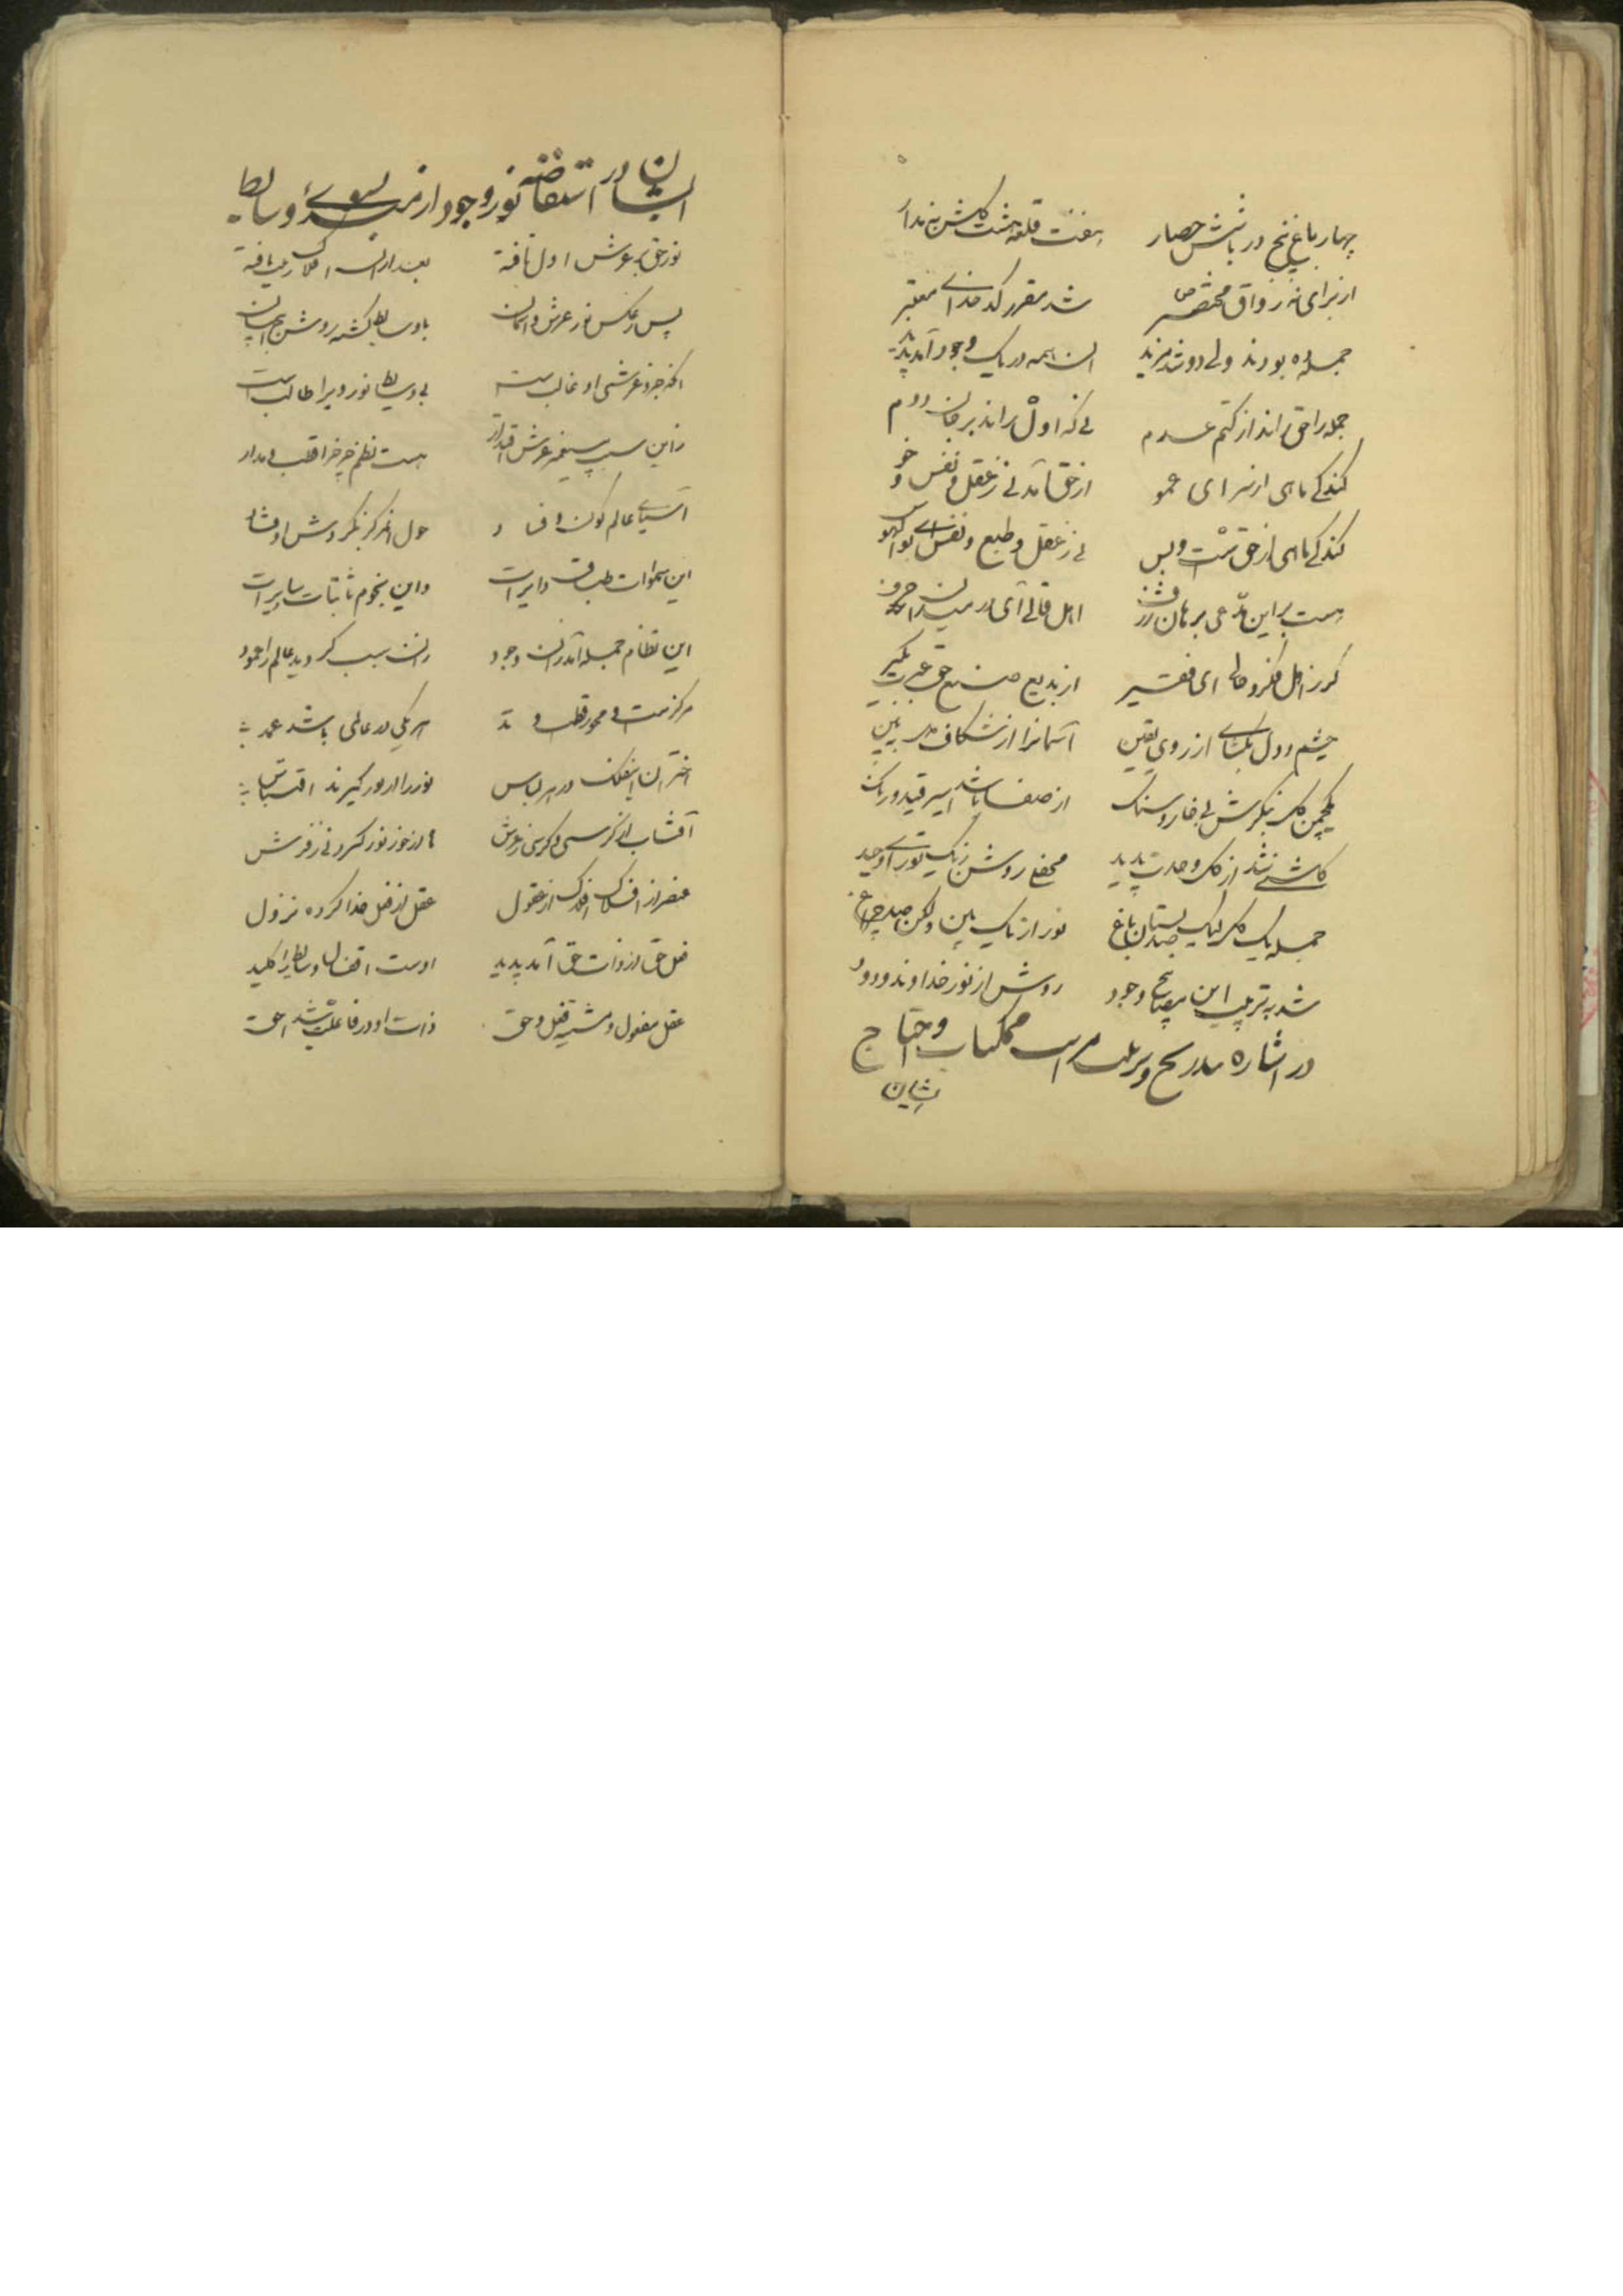 چهار باغ پنج در با شش حصار هفت قلعه هشت کاشن نه مدار
از برای نه رواق مختصر شد مقرر کدخدای معتبر
جمله ده بودند ولی دو شد مزید این همه در یک وجود آمد پدید
جمله را حق راند از کتم عدم نی که اول راند بر دوم
کند کی ماهی از سرای عمو از حق آمد نی ز عقل و نفس و خو
کند کی ماهی از حق است و بس نی ز عقل و طبع و نفس ای بوالهوس
هست بر این مدعی برهان اهل قالی آی در میدان
گر ز اهل فکر و حالی ای فقیر از بدیع صنع حق عبرت بگیر
چشم دل بگشای از روی یقین آسمانرا از شکاف در ببین
همچمن گل بنگرش بی خار و سنگ از صفا باشد اسیر قید و رنگ
کاشنی شد از گل وحدت پدید محفلی روشن ز یک نور وحید
جمله یک گل لیک صد بستان باغ نور از یک بین ولکن صد چراغ
شد به ترتیب این مصابیح وجود روشن از نور خداوند ودود
در اشاره بتدریج و ترتیب مراتب ممکنات و احتیاج
ایشان
ایشان در استفاضه نور وجود از مبدء بسوی وسایط
نور حق بر عرش اول تافته بعد از آن افلاک زیب یافته
پس ز عکس نور عرش و آسمان با وسایط گشته روشن
آنکه جزو عرشی او غالبست بی وسایط نور ویرا طالبست
زاین سبب عرش اقتدار هست نظم چرخ را قطب و مدار
آسیای عالم کون و فساد حول آن مرکز بگردش اوفتاد
این سموات طباق دایرات واین نجوم ثابتات سایرات
این نظام جمله آمد زان وجود زان سبب گردید عالم را عمود
مرکزست و محور قطب و هر یکی در عالمی باشد عمد
اختران فلک در هر لباس نور را از او گیرند اقتباس
آفتاب از کرسی و کرسی ز عرش ماه از خور نور گیرد نی ز فرش
عنصر از افلاک افلاک از عقول عقل از فعل خدا کرده نزول
فعل حق از ذات حق آمد پدید اوست اقفال وسایط را کلید
عقل مفعول و مشیت فعل حق ذات او در فاعلیت شد احق